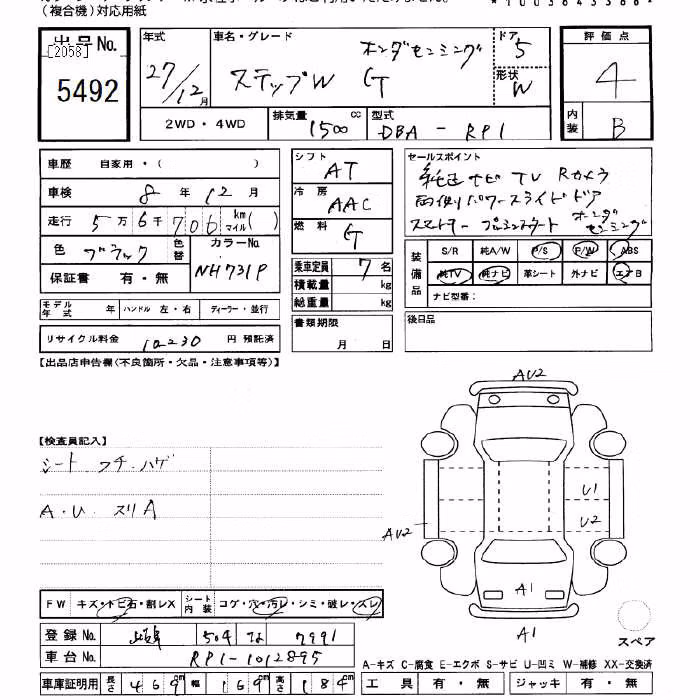 (複合機)対応用紙
出品No.
[2058]
5492
年式 27/12月
車名・グレード ホンダセンシング
ステップW G
ドア 5
形状 W
評価点 4
内装 B
2WD・4WD
排気量 1500 cc
型式 DBA-RP1
車歴 自家用・( )
車検 8年12月
走行 5万6千706 km マイル( )
色 ブラック 色替
カラーNo. NH731P
保証書 有・無
シフト AT
冷房 AAC
燃料 G
乗車定員 7名
積載量 kg
総重量 kg
セールスポイント
純正ナビ TV Rカメラ
両側パワースライドドア
スマートキー プッシュスタート ホンダセンシング
装備品
S/R 純A/W P/S P/W ABS
純TV 純ナビ 革シート 外ナビ エアB
ナビ型番:
モデル年式 年 ハンドル 左・右 ディーラー・並行
リサイクル料金 10230 円 預託済
書類期限 月 日
後日品
【出品店申告欄(不良箇所・欠品・注意事項等)】
【検査員記入】
シート フチ ハゲ
A・U スリA
AU2
U1
U2
AU2
A1
A1
スペア
FW キズ・トビ石・割レX
シート内装 コゲ・穴・汚レ・シミ・破レ・スレ
登録No. 504 7991
車台No. RP1-1012895
車庫証明用 長さ 469cm 幅 169cm 高さ 184cm
A-キズ C-腐食 E-エクボ S-サビ U-凹ミ W-補修 XX-交換済
工具 有・無 ジャッキ 有・無